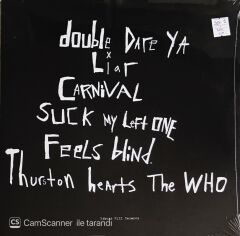 double Dare YA
x
Liar
CARNIVAL
SUCK MY Left ONE
Feels blind.
Thurston hearts The WHO
CS CamScanner ile tarandı